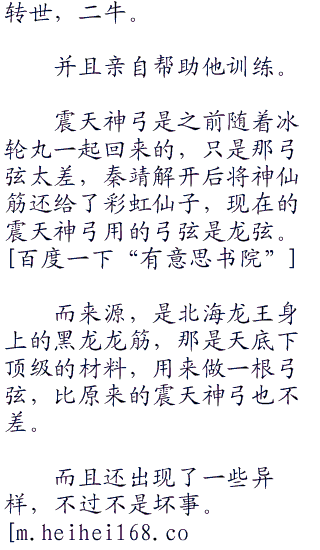 转世，二牛。
并且亲自帮助他训练。
震天神弓是之前随着冰
轮丸一起回来的，只是那弓
弦太差，秦靖解开后将神仙
筋还给了彩虹仙子，现在的
震天神弓用的弓弦是龙弦。
[百度一下“有意思书院”]
而来源，是北海龙王身
上的黑龙龙筋，那是天底下
顶级的材料，用来做一根弓
弦，比原来的震天神弓也不
差。
而且还出现了一些异
样，不过不是坏事。
[m.heihei168.co